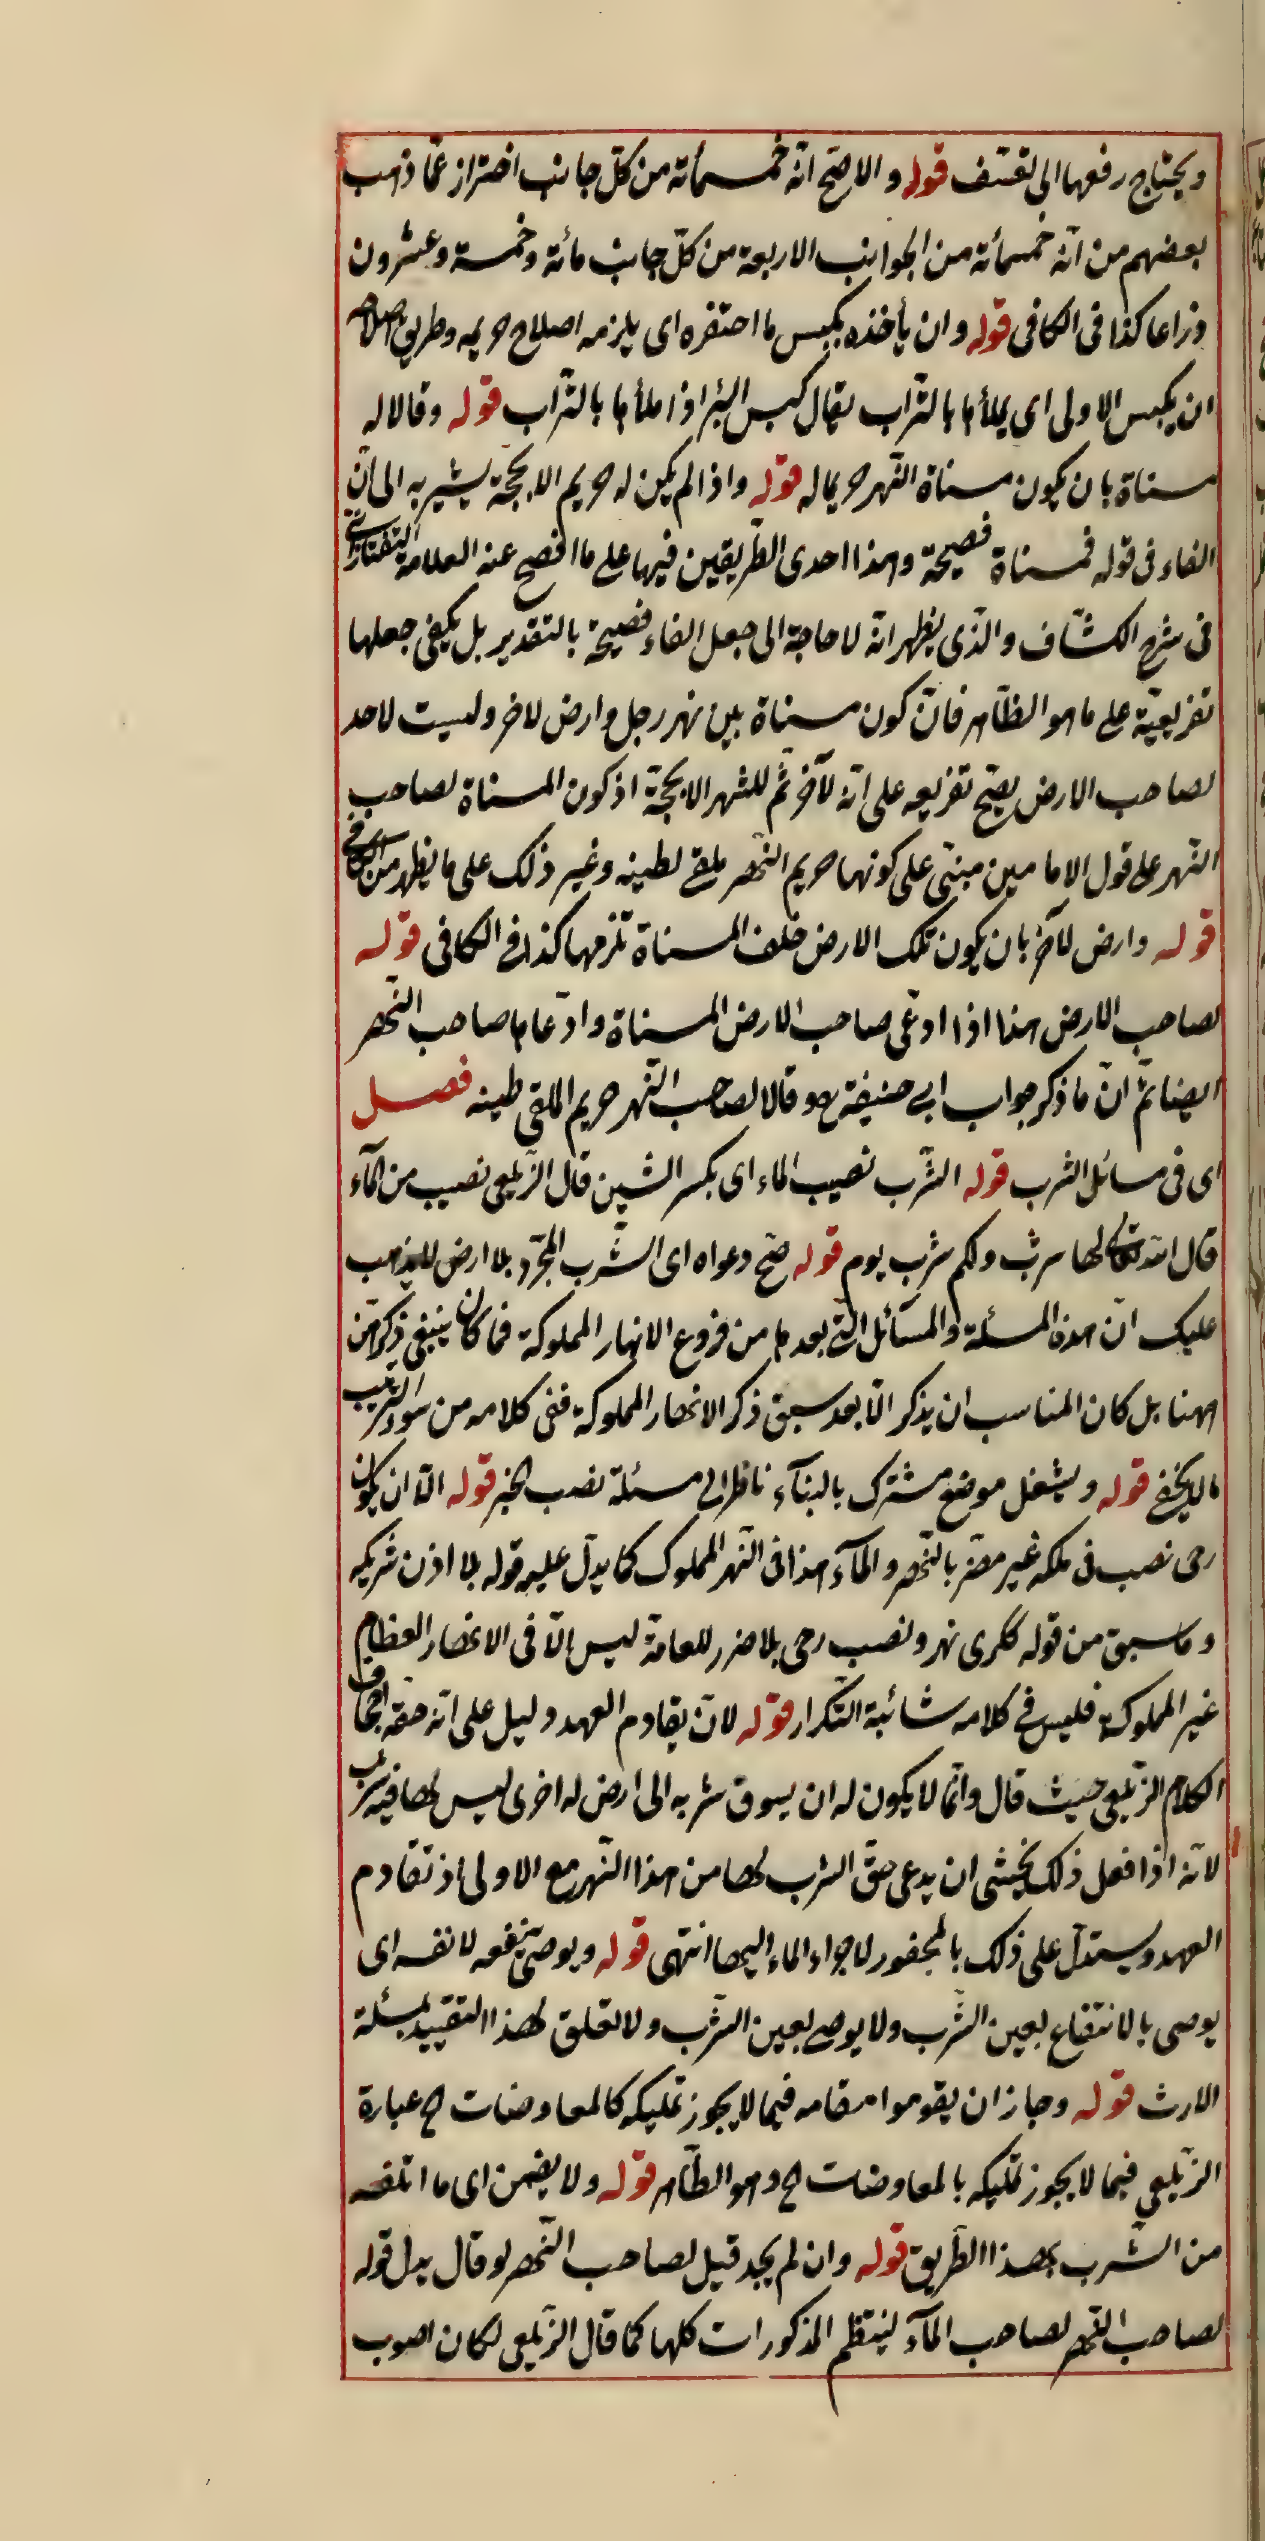 ويحتاج رفعها الى تعسف قوله والاصح انه خمسمائة من كل جانب احتراز عما ذهب
بعضهم من انه خمسمائة من الجوانب الاربعة من كل جانب مائة وخمسة وعشرون
ذراعا كذا فى الكافى قوله وان يأخذه بكبس ما احتفره اى يلزمه اصلاح حريمه وطريق اصلاحه
ان يكبس الاولى اى يملأها بالتراب يقال كبس البئر اذا ملأها بالتراب قوله وقالا له
مسناة بان يكون مسناة النهر حريما له قوله واذا لم يكن له حريم الا بحجة يشير به الى ان
الفاء فى قوله فمسناة فصيحة وهذا احدى الطريقين فيها على ما افصح عنه العلامة التفتازانى
فى شرح الكشاف والذى يظهر انه لا حاجة الى جعل الفاء فصيحة بالتقدير بل يكفى جعلها
تفريعية على ما هو الظاهر فان كون مسناة بين نهر رجل وارض لاخر وليست لاحد
لصاحب الارض يصح تفريعه على انه لا حريم للنهر الا بحجة اذ كون المسناة لصاحب
النهر على قول الامامين مبنى على كونها حريم النهر يلقى لطينه وغير ذلك على ما يظهر من الكافى
قوله وارض لآخر بان يكون تلك الارض خلف المسناة تلزمها كذا فى الكافى قوله
لصاحب الارض هذا اذا ادعى صاحب الارض المسناة وادعاها صاحب النهر
ايضا ثم ان ما ذكر جواب ابى حنيفة رح وقالا لصاحب النهر حريم الملقى طينه فصل
اى فى مسائل الشرب قوله الشرب نصيب الماء اى بكسر الشين قال الزيلعى نصيب من الماء
قال الله تعالى لها شرب ولكم شرب يوم قوله صح دعواه اى الشرب المجرد بلا ارض لا يذهب
عليك ان هذه المسئلة والمسائل التى بعدها من فروع الانهار المملوكة فما كان ينبغى ذكرهن
ههنا بل كان المناسب ان يذكر الا بعد سبق ذكر الانهار المملوكة ففى كلامه من سوء الترتيب
ما لا يخفى قوله ويشغل موضع مشترك بالبناء ناظر الى مسئلة نصب الجسر قوله الا ان يكون
رحى نصب فى ملكه غير مضر بالنهر والماء هذا فى النهر المملوك كما يدل عليه قوله بلا اذن شريكه
وما سبق من قوله ككرى نهر ونصب رحى بلا ضرر للعامة ليس الا فى الانهار العظام
غير المملوكة فليس فى كلامه شائبة التكرار قوله لان يقادم العهد دليل على انه حقه اجحاف
الكلام الزيلعى حيث قال وانما لا يكون له ان يسوق شربه الى ارض له اخرى ليس لها فيه شرب
لانه اذا فعل ذلك يخشى ان يدعى حق الشرب لها من هذا النهر مع الاولى اذ تقادم
العهد ويستدل على ذلك بالمحفور لاجراء الماء اليها انتهى قوله ويوصى بنفعه لا نفسه اى
يوصى بالانتفاع بعين الشرب ولا يوصى بعين الشرب ولا تعلق لهذا التقييد لمسئلة
الارث قوله وجاز ان يقوموا مقامه فيما لا يجوز تمليكه كالمعاوضات ح عبارة
الزيلعى فيما لا يجوز تمليكه بالمعاوضات ح وهو الظاهر قوله ولا يضمن اى ما اتلفه
من الشرب بهذا الطريق قوله وان لم يجد قيل لصاحب النهر لو قال بدل قوله
لصاحب النهر لصاحب الماء لينتظم المذكورات كلها كما قال الزيلعى لكان اصوب